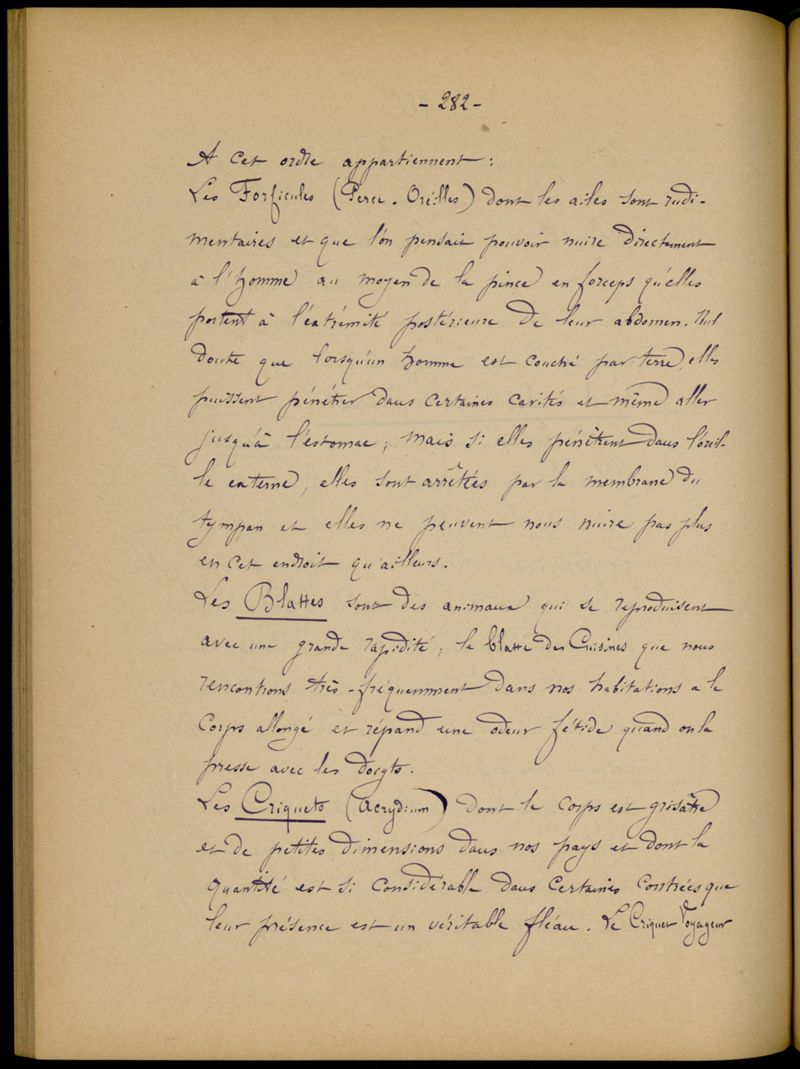 - 282 -
A cet ordre appartiennent :
Les Forficules (Perce-Oreilles) dont les ailes sont rudi-
mentaires et que l'on pensait pouvoir nuire directement
à l'homme au moyen de la pince en forceps qu'elles
portent à l'extrémité postérieure de leur abdomen. Nul
doute que lorsqu'un homme est couché par terre, elles
puissent pénétrer dans certaines cavités et même aller
jusqu'à l'estomac ; mais si elles pénètrent dans l'oreil-
le externe, elles sont arrêtées par la membrane du
tympan et elles ne peuvent nous nuire pas plus
en cet endroit qu'ailleurs.
Les Blattes sont des animaux qui se reproduisent
avec une grande rapidité ; la blatte des Cuisines que nous
rencontrons très-fréquemment dans nos habitations a le
corps allongé et répand une odeur fétide quand on la
presse avec les doigts.
Les Criquets (Acrydium) dont le corps est grisâtre
et de petites dimensions dans nos pays et dont la
quantité est si considérable dans certaines contrées que
leur présence est un véritable fléau. Le Criquet Voyageur